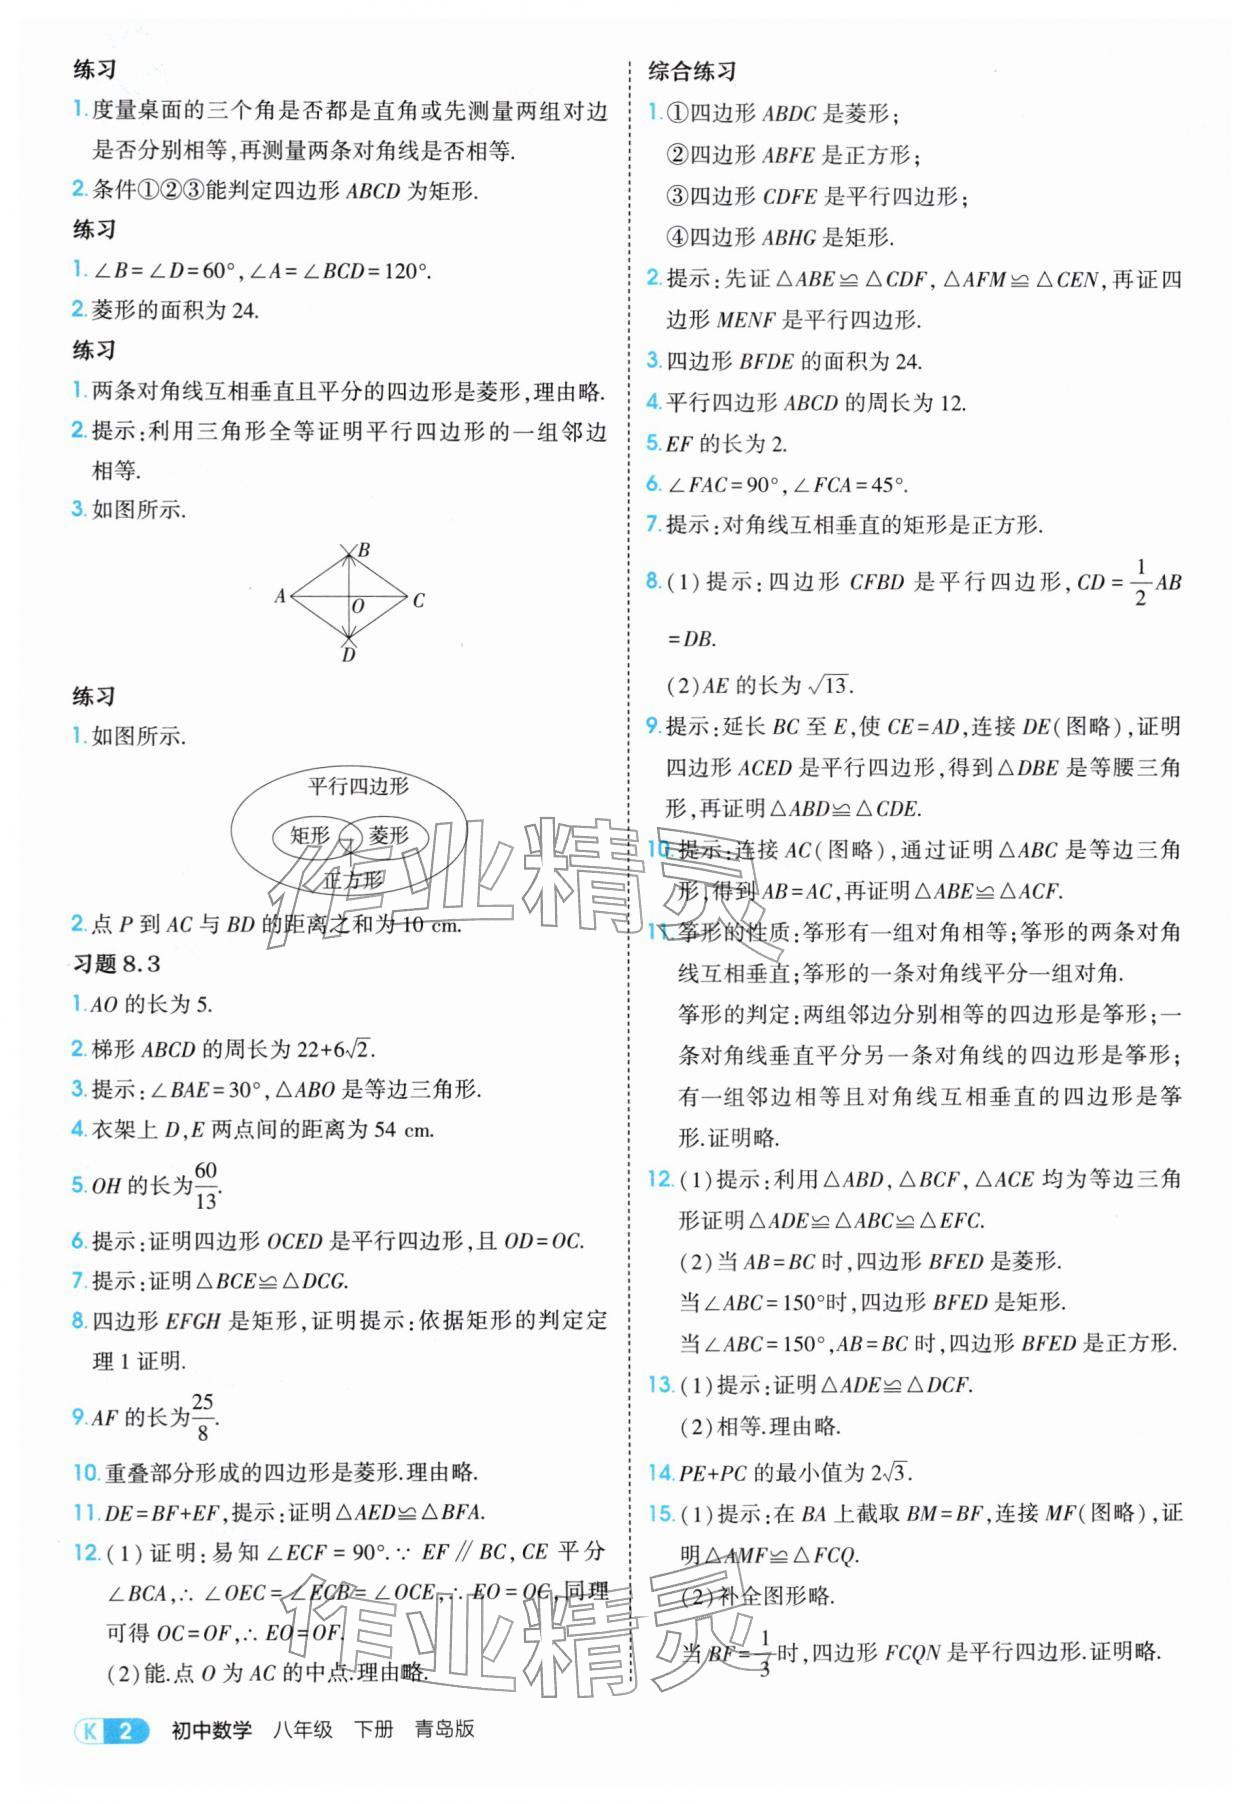 练习
1.度量桌面的三个角是否都是直角或先测量两组对边
是否分别相等,再测量两条对角线是否相等.
2.条件①②③能判定四边形 ABCD 为矩形.
练习
1.∠B=∠D=60°,∠A=∠BCD=120°.
2.菱形的面积为24.
练习
1.两条对角线互相垂直且平分的四边形是菱形,理由略.
2.提示:利用三角形全等证明平行四边形的一组邻边
相等.
3.如图所示.
B
A
O
C
D
练习
1.如图所示.
平行四边形
矩形
菱形
正方形
2.点 P 到 AC 与 BD 的距离之和为 10 cm.
习题8.3
1.AO 的长为 5.
2.梯形 ABCD 的周长为 22+6√2.
3.提示:∠BAE=30°,△ABO 是等边三角形.
4.衣架上 D,E 两点间的距离为 54 cm.
5.OH 的长为60/13.
6.提示:证明四边形 OCED 是平行四边形,且 OD=OC.
7.提示:证明△BCE≌△DCG.
8.四边形 EFGH 是矩形,证明提示:依据矩形的判定定
理 1 证明.
9.AF 的长为25/8.
10.重叠部分形成的四边形是菱形.理由略.
11.DE=BF+EF,提示:证明△AED≌△BFA.
12.(1)证明:易知∠ECF=90°.∵EF∥BC,CE 平分
∠BCA,∴∠OEC=∠ECB=∠OCE,∴EO=OC,同理
可得 OC=OF,∴EO=OF.
(2)能.点 O 为 AC 的中点.理由略.
综合练习
1.①四边形 ABDC 是菱形;
②四边形 ABFE 是正方形;
③四边形 CDFE 是平行四边形;
④四边形 ABHG 是矩形.
2.提示:先证△ABE≌△CDF,△AFM≌△CEN,再证四
边形 MENF 是平行四边形.
3.四边形 BFDE 的面积为 24.
4.平行四边形 ABCD 的周长为 12.
5.EF 的长为 2.
6.∠FAC=90°,∠FCA=45°.
7.提示:对角线互相垂直的矩形是正方形.
8.(1)提示:四边形 CFBD 是平行四边形,CD=1/2AB
=DB.
(2)AE 的长为√13.
9.提示:延长 BC 至 E,使 CE=AD,连接 DE(图略),证明
四边形 ACED 是平行四边形,得到△DBE 是等腰三角
形,再证明△ABD≌△CDE.
10.提示:连接 AC(图略),通过证明△ABC 是等边三角
形,得到 AB=AC,再证明△ABE≌△ACF.
11.筝形的性质:筝形有一组对角相等;筝形的两条对角
线互相垂直;筝形的一条对角线平分一组对角.
筝形的判定:两组邻边分别相等的四边形是筝形;一
条对角线垂直平分另一条对角线的四边形是筝形;
有一组邻边相等且对角线互相垂直的四边形是筝
形.证明略.
12.(1)提示:利用△ABD,△BCF,△ACE 均为等边三角
形证明△ADE≌△ABC≌△EFC.
(2)当 AB=BC 时,四边形 BFED 是菱形.
当∠ABC=150°时,四边形 BFED 是矩形.
当∠ABC=150°,AB=BC 时,四边形 BFED 是正方形.
13.(1)提示:证明△ADE≌△DCF.
(2)相等.理由略.
14.PE+PC 的最小值为 2√3.
15.(1)提示:在 BA 上截取 BM=BF,连接 MF(图略),证
明△AMF≌△FCQ.
(2)补全图形略.
当 BF=1/3时,四边形 FCQN 是平行四边形.证明略.
作业精灵
作业精灵
K 2 初中数学 八年级 下册 青岛版